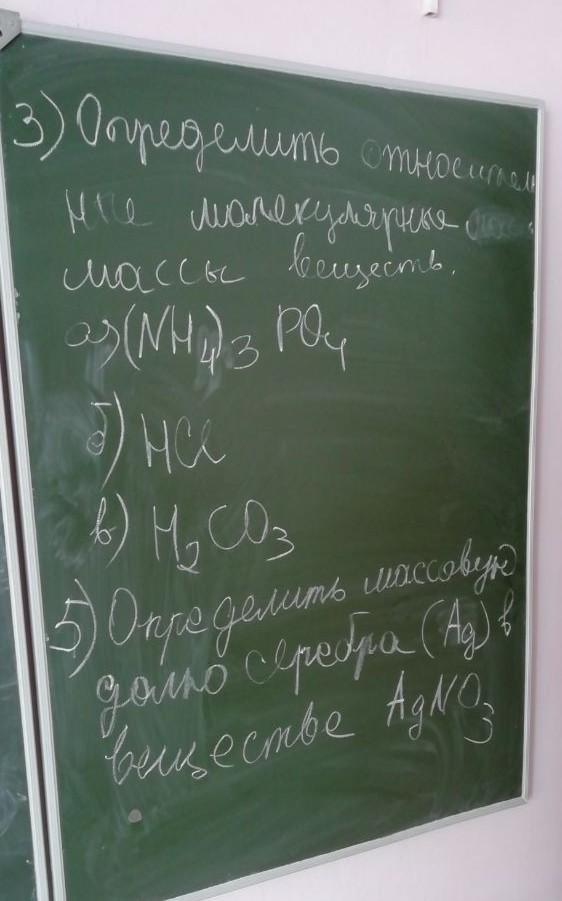 3) Определить относитель
ные молекулярные
массы веществ.
а) (NH₄)₃ PO₄
б) HCl
в) H₂CO₃
5) Определить массовую
долю серебра (Ag) в
веществе AgNO₃